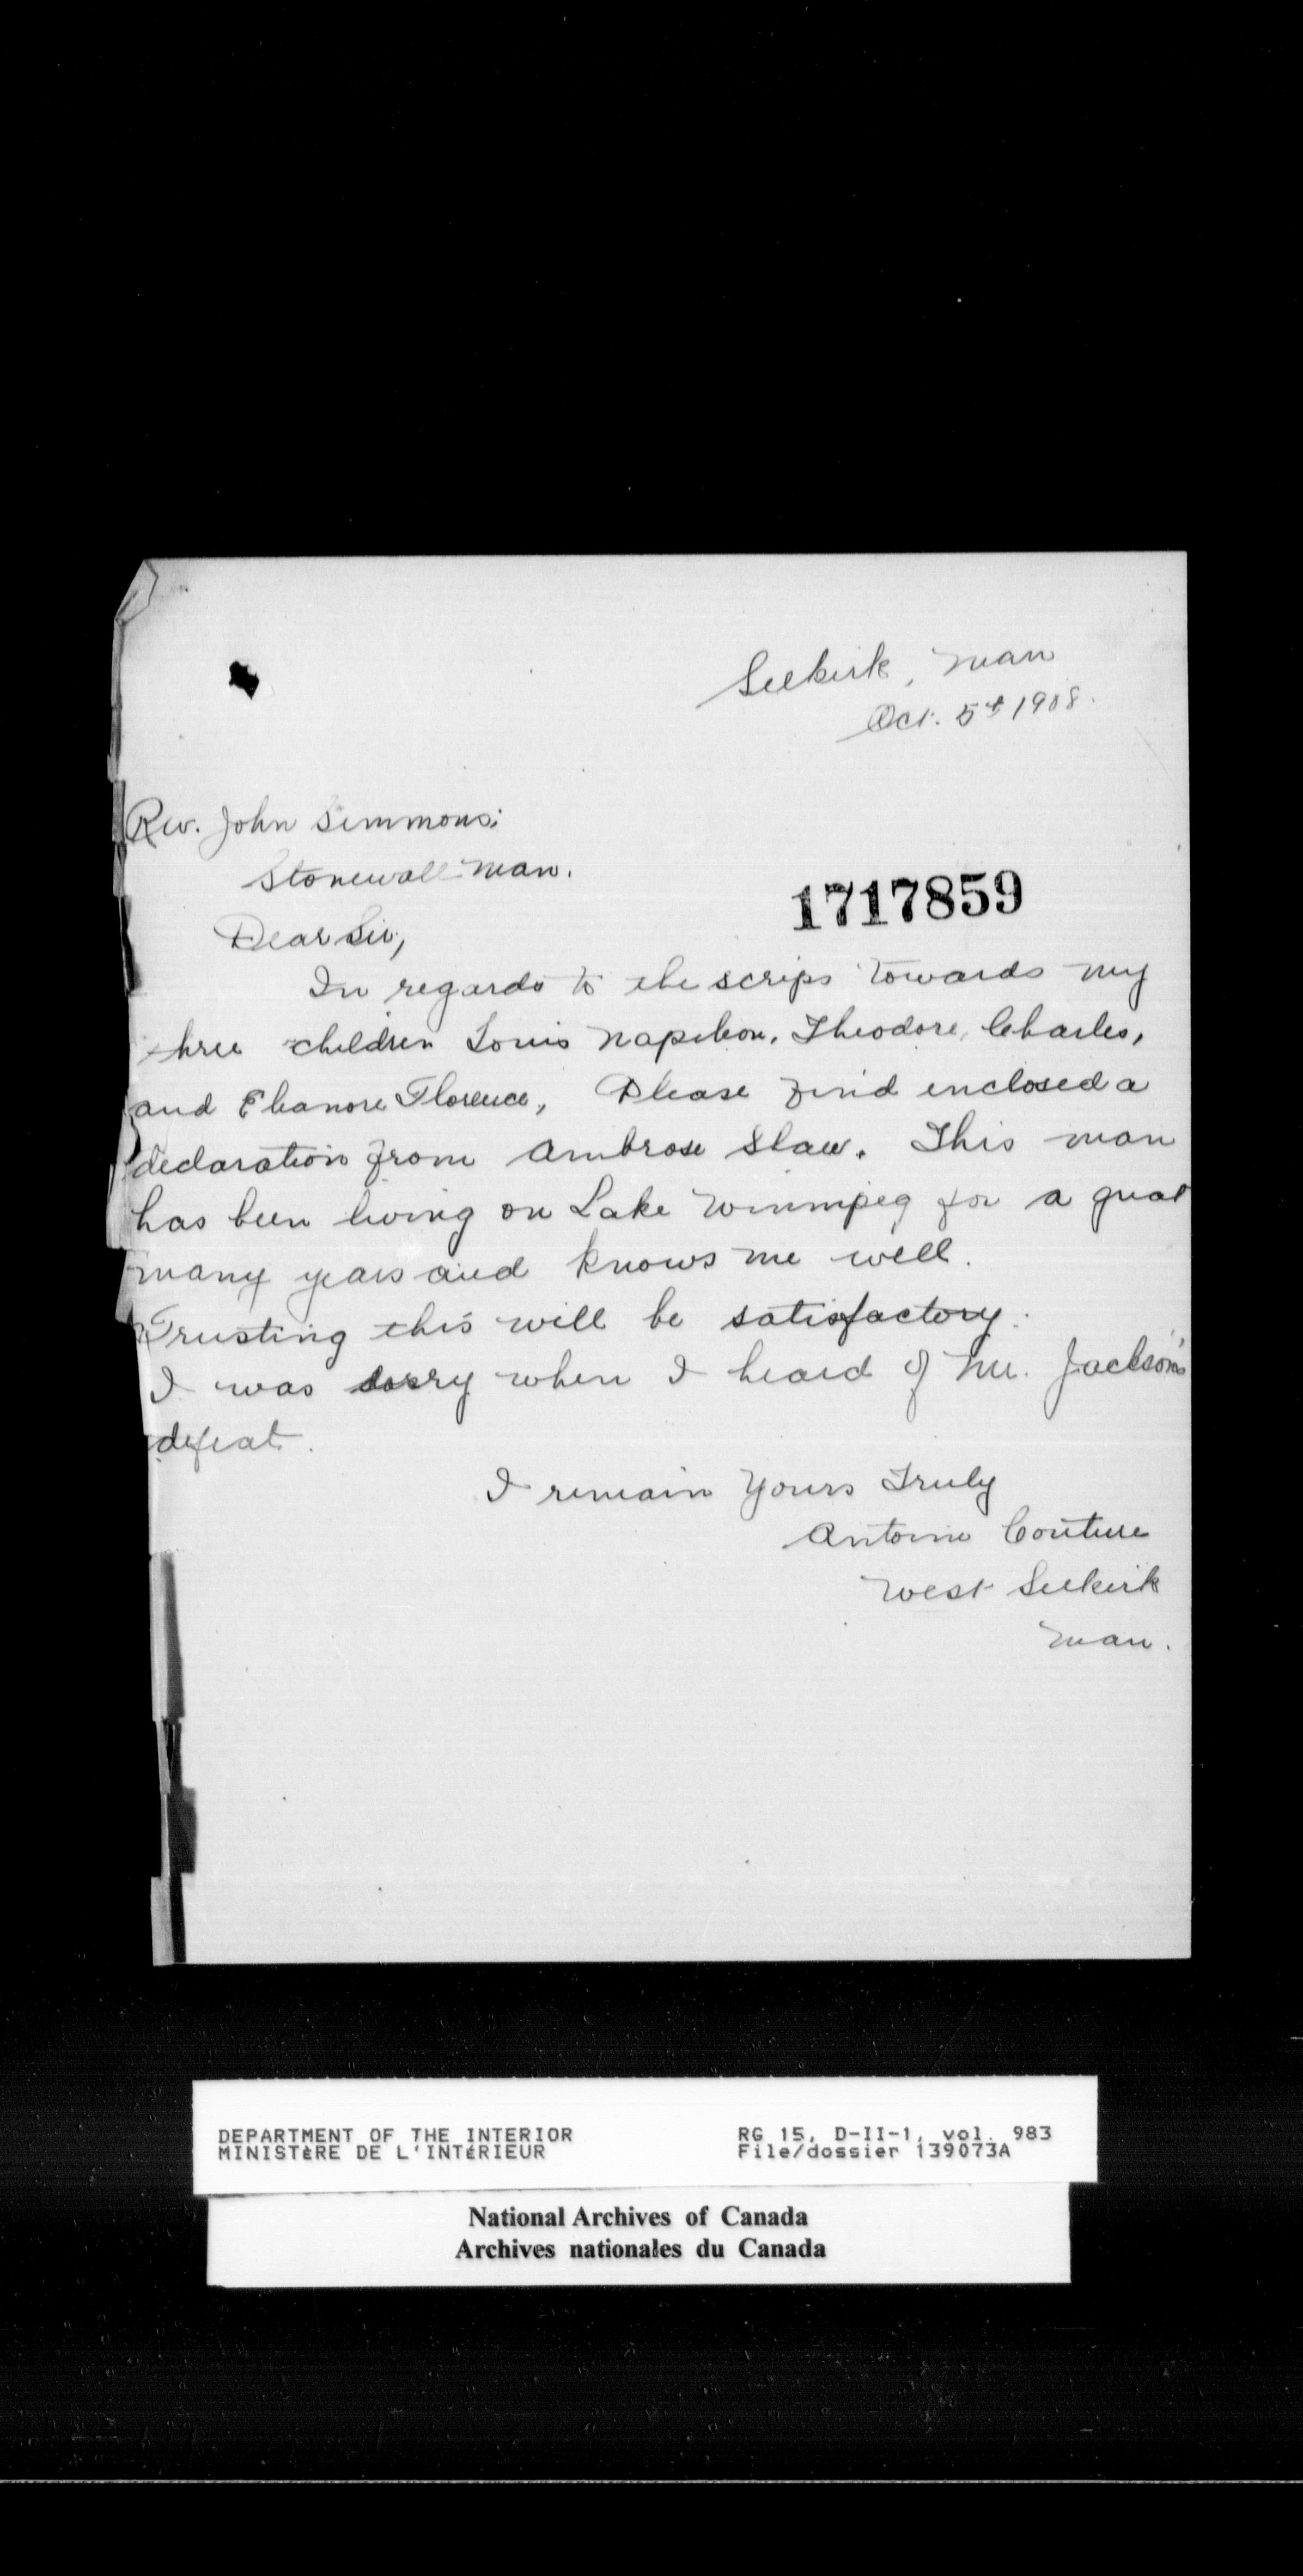 Selkirk, Man
Oct. 5th 1908.
Rev. John Semmons;
Stonewall Man.
1717859
Dear Sir,
In regards to the scrips towards my
three children Louis Napoleon, Theodore, Charles,
and Eleanore Florence, Please find enclosed a
declaration from Ambrose Slaw. This man
has been living on Lake Winnipeg for a great
many years and knows me well.
Trusting this will be satisfactory.
I was sorry when I heard of Mr. Jackson's
defeat.
I remain Yours Truly
Antoine Couture
West Selkirk
Man.
DEPARTMENT OF THE INTERIOR
MINISTÈRE DE L'INTÉRIEUR
RG 15, D-II-1, vol. 983
File/dossier 139073A
National Archives of Canada
Archives nationales du Canada